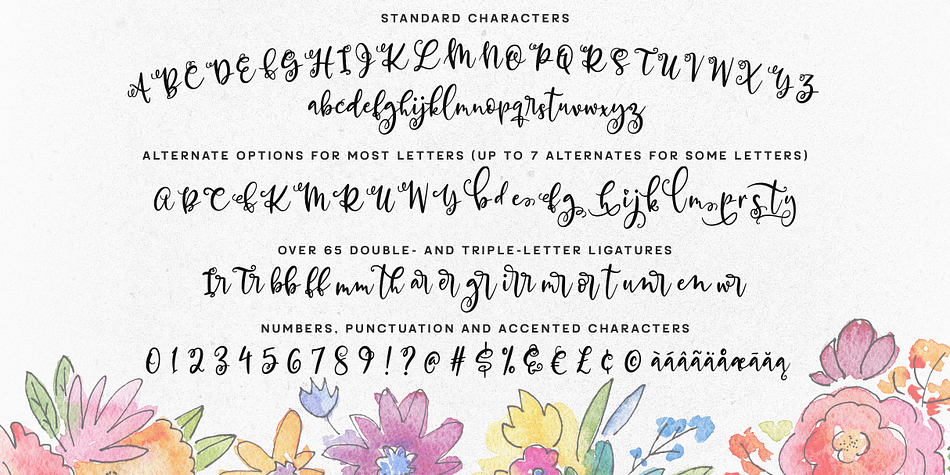 STANDARD CHARACTERS
A B C D E F G H I J K L M N O P Q R S T U V W X Y Z
abcdefghijklmnopqrstuvwxyz
ALTERNATE OPTIONS FOR MOST LETTERS (UP TO 7 ALTERNATES FOR SOME LETTERS)
A B C E K M R U W Y b d e f g h i j k l m p r s t y
OVER 65 DOUBLE- AND TRIPLE-LETTER LIGATURES
Ir Tr bb ff mm Th ar er gr irr mr or rt unr en wr
NUMBERS, PUNCTUATION AND ACCENTED CHARACTERS
0 1 2 3 4 5 6 7 8 9 ! ? @ # $ % & € £ ¢ © àáâãäåæāăą